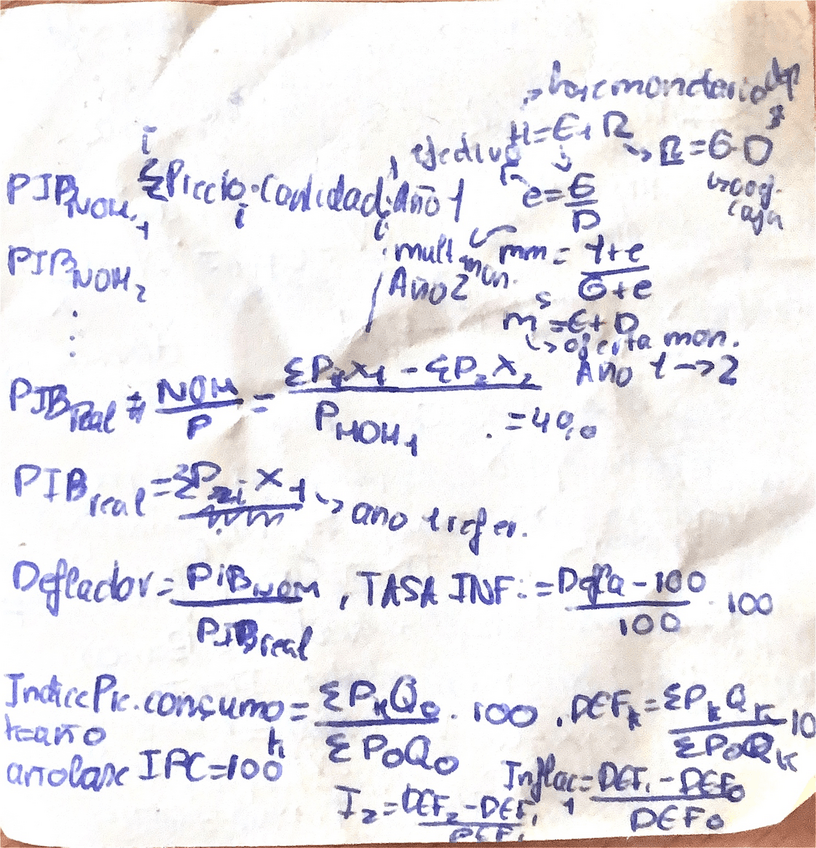 → base monetaria dep
H=E+R → R=6·D
efectivo
e=E/D
↳coef. caja
PIB NOM 1 Σ Precio i · Cantidad i Año 1
PIB NOM 2
mult. mon. mm = 1+e / 6+e
Año 2
m = E+D
↳ oferta mon.
Año 1→2
PIB Real = NOM / P = ΣP1X1 - ΣP2X2 / P NOM 1 = 40,0
PIB real = ΣP2i X1 → año 1 refer.
Deflactor = PIB NOM / PIB real , TASA INF. = Defla - 100 / 100 · 100
Indice Pre. consumo k = ΣPkQ0 / ΣP0Q0 · 100 , DEFk = ΣPkQk / ΣP0Qk 10
k=año
año base IPC=100
Inflac 1 = DEF1 - DEF0 / DEF0
I2 = DEF2 - DEF1 / DEF1